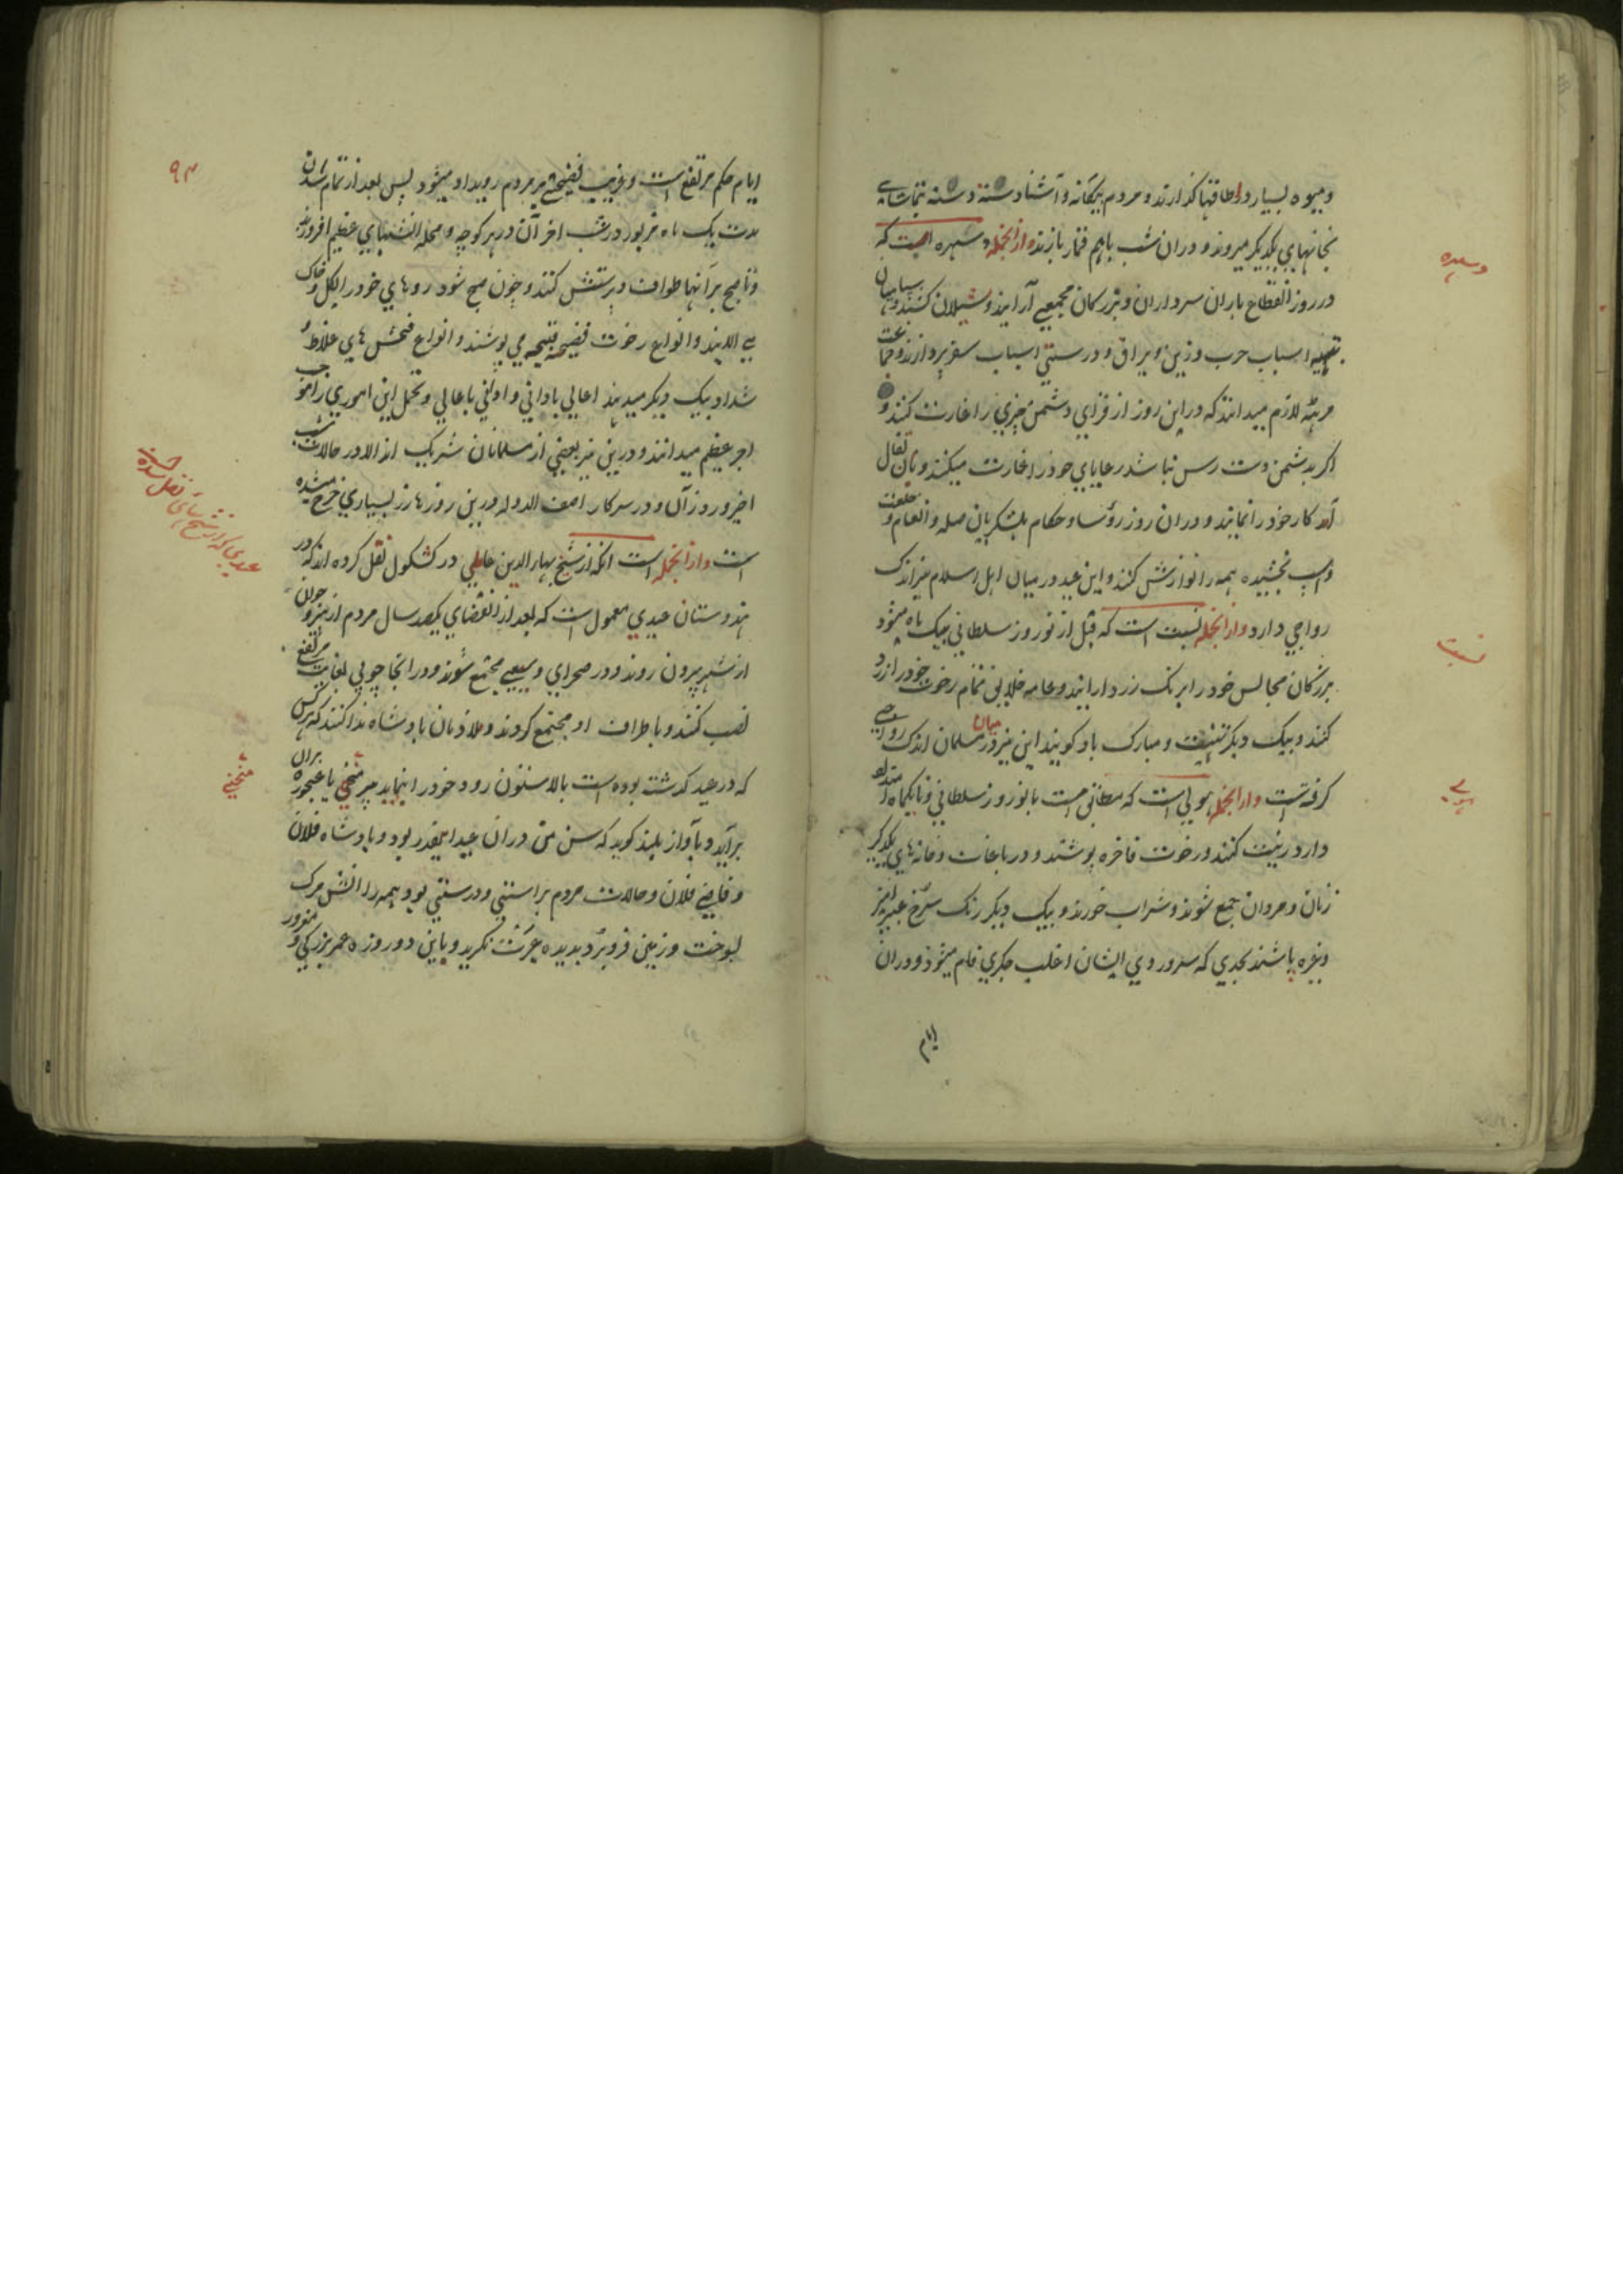 و میوه بسیار در اطاقها گذارند و مردم بیگانه و آشنا دسته دسته بتماشای
بخانهای یکدیگر میروند و دران شب باهم قمار بازند و ازانجمله دسهره است که
دسهره
در روز انقطاع باران سرداران و بزرگان مجمعی آرایند و شیلان کشند و سپاهیان
بتهیه اسباب حرب و زین و یراق و درستی اسباب سفر پردازند و جماعت
مرهته لازم میدانند که دراین روز از قرای دشمن چیزی را غارت کنند و
اگر بدشمن دست رس نباشد رعایای خود را غارت میکنند و بان تفال
آمد کار خود را نمایند و دران روز رؤسا و حکام بلشکریان صله و انعام و خلعت
و اسپ بخشیده همه را نوازش کنند و این عید در میان اهل اسلام نیز اندک
رواجی دارد و ازانجمله بسنت است که قبل از نوروز سلطانی بیک ماه میشود
بسنت
بزرگان مجالس خود را برنگ زرد آرایند و عامه خلایق تمام رخوت خود را زرد
کنند و بیک دیگر تهنیت و مبارک باد گویند این نیز در میان مسلمان اندک رواجی
گرفته است و ازانجمله هولی است که مطابق است با نوروز سلطانی و تا یکماه امتداد
هولی
دارد زینت کنند و رخوت فاخره پوشند و در باغات و خانه های یکدیگر
زنان و مردان جمع شوند و شراب خورند و بیک دیگر رنگ سرخ عبیر آمیز
و غیره پاشند بحدی که سر و روی ایشان اغلب جگری فام میشود و دران
ایام
۹۳
ایام حکم مرتفع است و غریب فضیحتی بر مردم رویداد میشود پس بعد از تمام شدن
مدت یک ماه مزبور در شب اخر آن در هر کوچه و محله اتشهای عظیم افروزند
و تا صبح بر آنها طواف و پرستش کنند و چون صبح شود روهای خود را بگل و خاک
بیالایند و انواع رخوت فضیحه قبیحه می پوشند و انواع فحش های غلاظ و
شداد بیک دیگر میدهند اعالی بادانی و ادانی باعالی و تحمل این امور را موجب
اجر عظیم میدانند و درین نیز بعضی از مسلمانان شریک اند الا در حالات شب
اخیر و روز آن و در سرکار اصف الدوله درین روزها زر بسیاری خرج میشده
است و ازانجمله است انکه از شیخ بهاء الدین عاملی در کشکول نقل کرده اند که در
عیدی که از شیخ بهائی نقل شده است
هندوستان عیدی معمول است که بعد از انقضای یکصد سال مردم از پیر و جوان
از شهر بیرون روند و در صحرای وسیعی مجتمع شوند و در انجا چوبی بغایت مرتفع
نصب کنند و باطراف او مجتمع گردند و ملازمان پادشاه ندا کنند که هر کس
که در عید گذشته بوده است بالا ستون رود خود را بنماید پیر منحنی یا عجوزه بران
منحنی
برآید و بآواز بلند گوید که سن من دران عید اینقدر بود و پادشاه فلان
و قاضی فلان و حالات مردم براستی و درستی بود همه را اتش مرگ
بسوخت و زمین فرو برد بدیده عبرت نگرید و باین دو روزه عمر بزرگی و مغرور